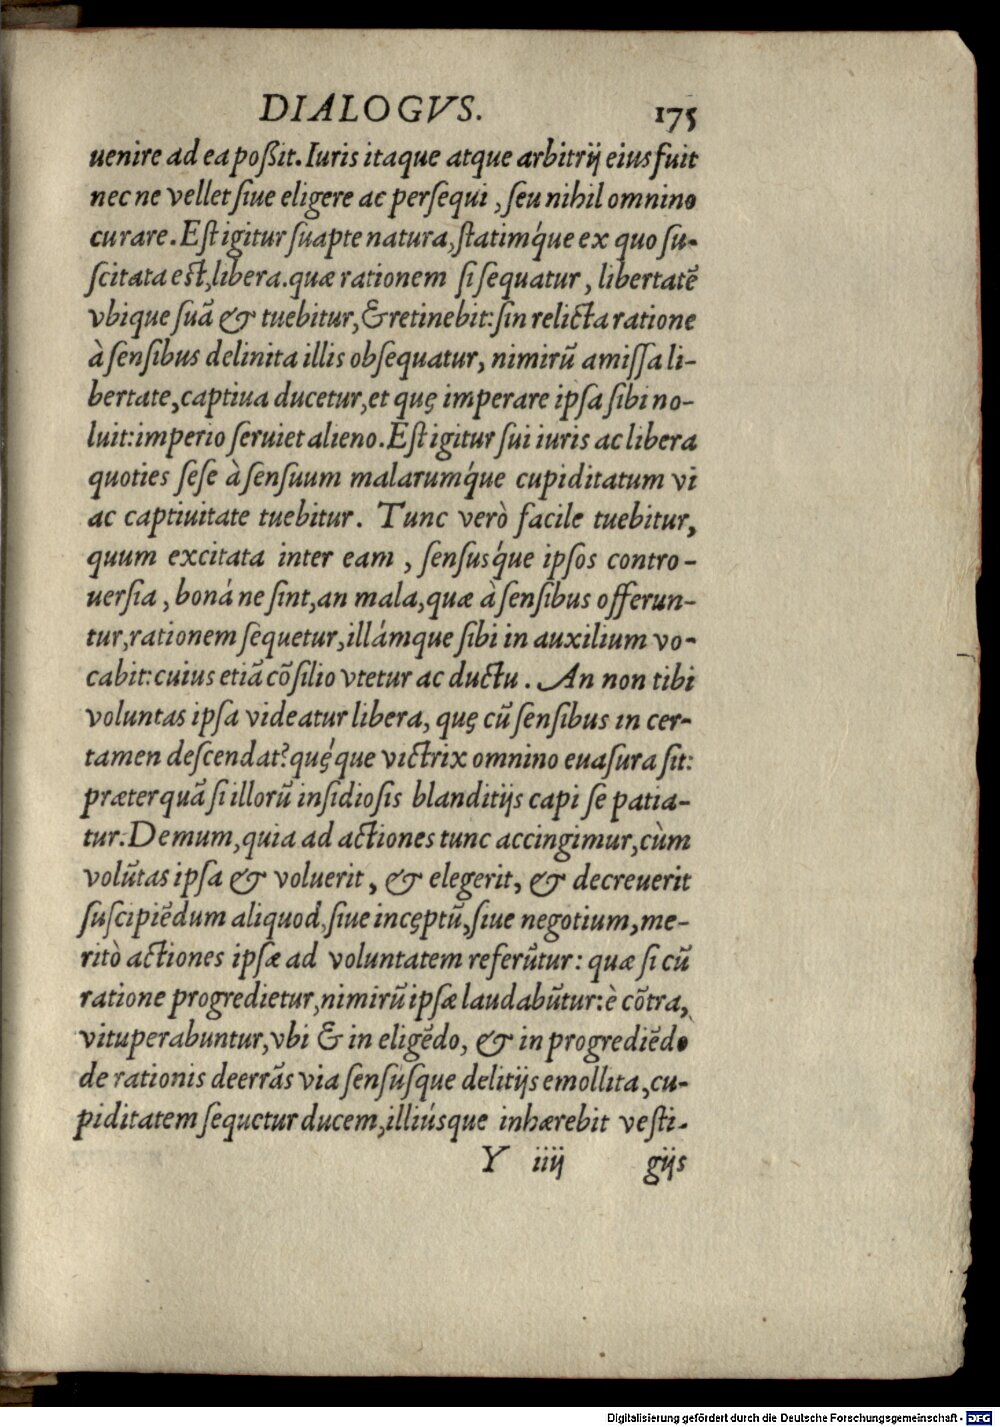 DIALOGVS. 175
uenire ad ea poßit. Iuris itaque atque arbitrij eius fuit
nec ne vellet ſiue eligere ac perſequi, ſeu nihil omnino
curare. Eſt igitur ſuapte natura, ſtatiḿque ex quo ſu-
ſcitata eſt, libera. quæ rationem ſi ſequatur, libertatẽ
vbique ſuã & tuebitur, & retinebit: ſin relicta ratione
à ſenſibus delinita illis obſequatur, nimirũ amiſſa li-
bertate, captiua ducetur, et quę imperare ipſa ſibi no-
luit: imperio ſeruiet alieno. Eſt igitur ſui iuris ac libera
quoties ſeſe à ſenſuum malaruḿque cupiditatum vi
ac captiuitate tuebitur. Tunc verò facile tuebitur,
quum excitata inter eam, ſenſuś́que ipſos contro-
uerſia, boná ne ſint, an mala, quæ à ſenſibus offerun-
tur, rationem ſequetur, illámque ſibi in auxilium vo-
cabit: cuius etiã cõſilio vtetur ac ductu. An non tibi
voluntas ipſa videatur libera, quę cũ ſenſibus in cer-
tamen deſcendat? quę́que victrix omnino euaſura ſit:
præterquã ſi illorũ inſidioſis blanditijs capi ſe patia-
tur. Demum, quia ad actiones tunc accingimur, cùm
volũtas ipſa & voluerit, & elegerit, & decreuerit
ſuſcipiẽdum aliquod, ſiue incęptũ, ſiue negotium, me-
ritò actiones ipſæ ad voluntatem referũtur: quæ ſi cũ
ratione progredietur, nimirũ ipſæ laudabũtur: è cõtra,
vituperabuntur, vbi & in eligẽdo, & in progrediẽdo
de rationis deerrãs via ſenſúſque delitijs emollita, cu-
piditatem ſequetur ducem, illiúsque inhærebit veſti-
Y iiij gijs
Digitalisierung gefördert durch die Deutsche Forschungsgemeinschaft - DFG